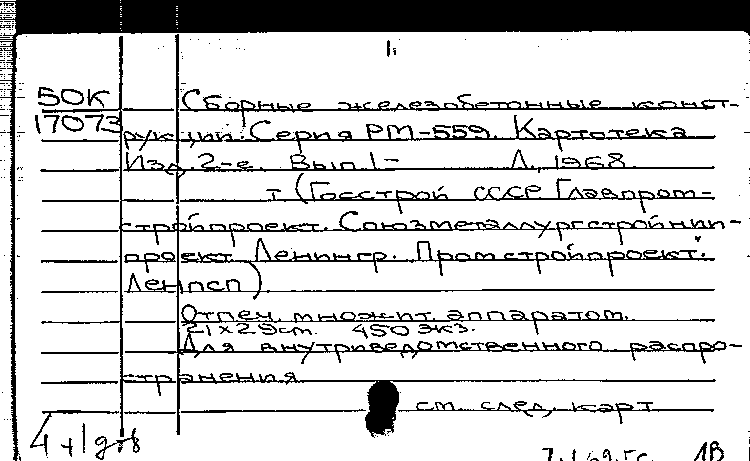 1.
50К
17073
Сборные железобетонные конст-
рукций. Серия РМ-559. Картотека
Изд. 2-е. Вып. 1- Л., 1968.
т. (Госстрой СССР Главпром-
стройпроект. Союзметаллургстройнии-
проект Ленингр. Промстройпроект".
Ленпсп).
Отпеч. множит. аппаратом.
21х29cm. 450 экз.
Для внутриведомственного распро-
странения
см. след. карт
4+1
1В